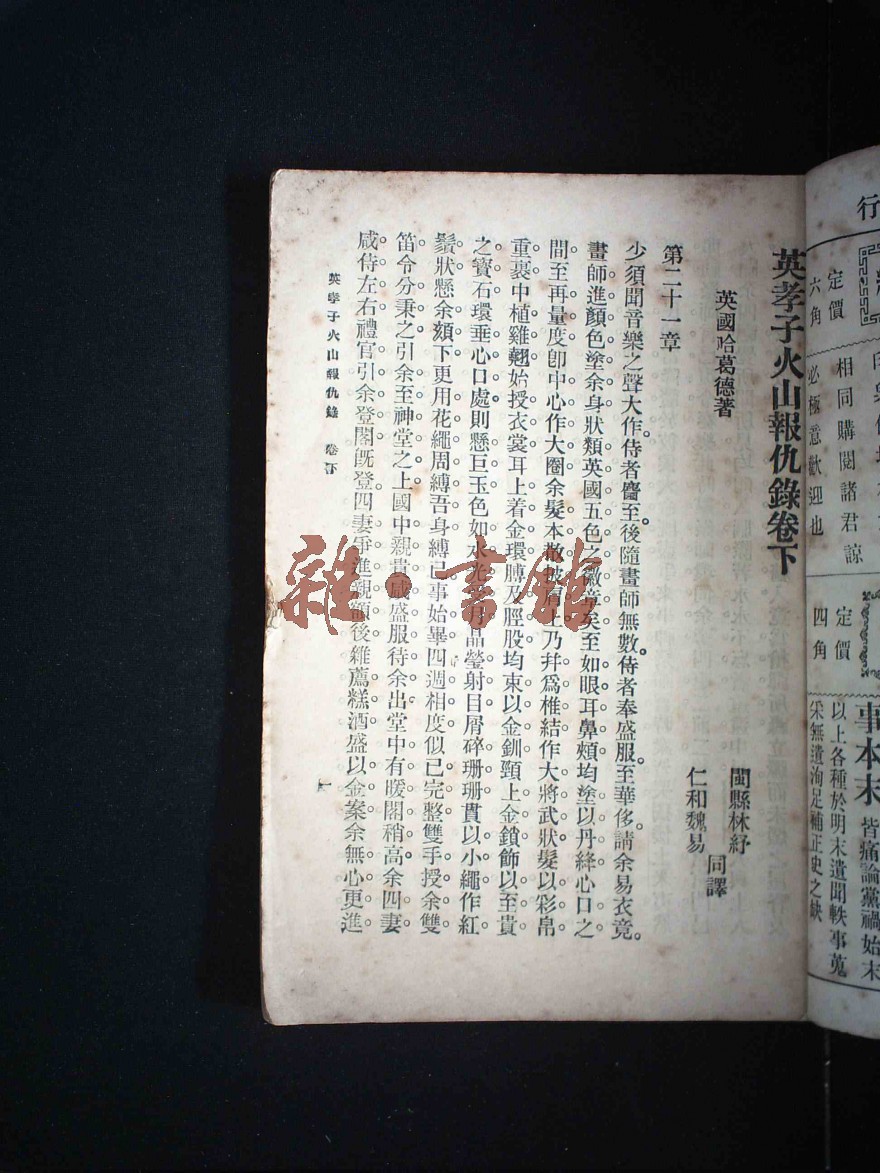 英孝子火山報仇錄卷下
英國哈葛德著
閩縣林紓
仁和魏易
同譯
第二十一章
少須聞音樂之聲大作侍者麕至後隨畫師無數侍者奉盛服至華侈請余易衣竟。
畫師進顏色塗余身狀類英國五色之徽章矣至如眼耳鼻頰均塗以丹絳心口之
間至再量度卽中心作大圈余髮本散披肩上乃幷爲椎結作大將武狀髮以彩帛
重裹中植雞翹始授衣裳耳上着金環膊及脛股均束以金釧頸上金鎖飾以至貴
之寶石環垂心口處則懸巨玉色如水光月晶瑩射目屑碎珊珊貫以小繩作紅
鬚狀懸余頦下更用花繩周縛吾身縛已事始畢四週相度似已完整雙手授余雙
笛令分秉之引余至神堂之上國中親貴咸盛服待余出堂中有暖閣稍高余四妻
咸侍左右禮官引余登閣旣登四妻爭進親額後雜薦糕酒盛以金案余無心更進
英孝子火山報仇錄 卷下
一
雜·書館
行
定價
六角
相同購閱諸君諒
必極意歡迎也
定價
四角
事本末
皆痛論黨禍始末
以上各種於明末遺聞軼事蒐
采無遺洵足補正史之缺